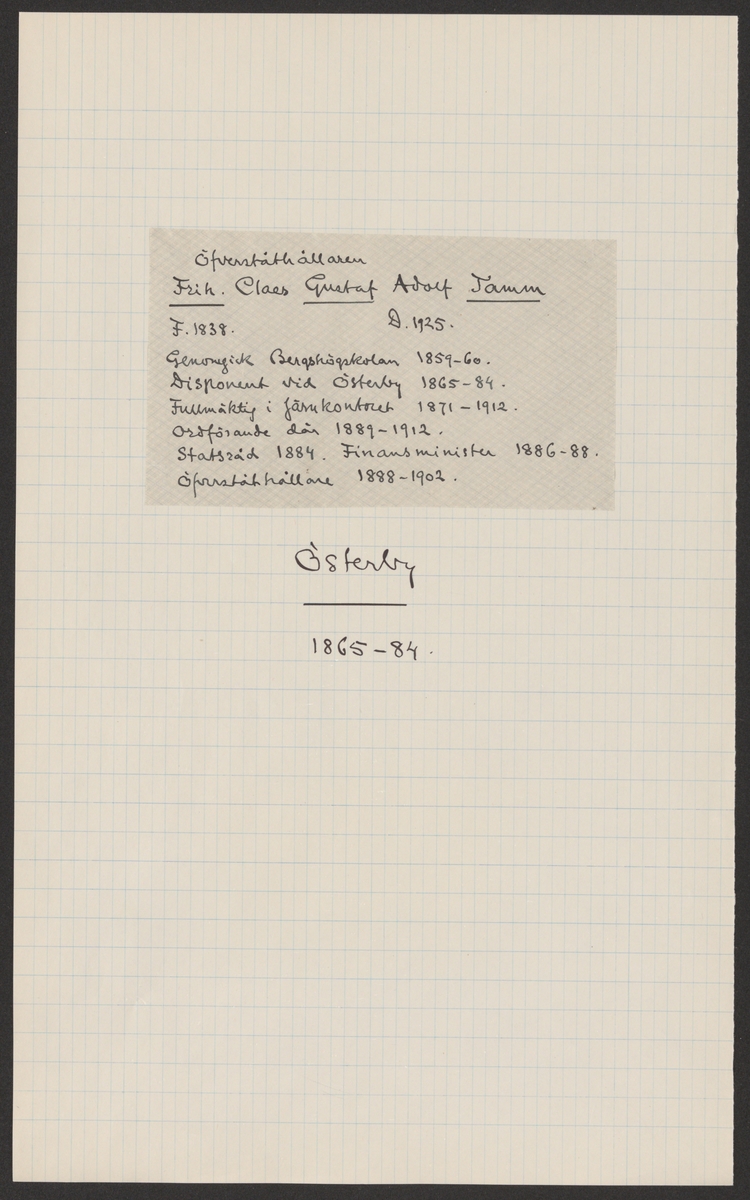 Öfverståthållaren
Frih. Claes Gustaf Adolf Tamm
F. 1838. D. 1925.
Genomgick Bergshögskolan 1859-60.
Disponent vid Österby 1865-84.
Fullmäktig i Järnkontoret 1871-1912.
Ordförande där 1889-1912.
Statsråd 1884. Finansminister 1886-88.
Öfverståthållare 1888-1902.
Österby
1865-84.